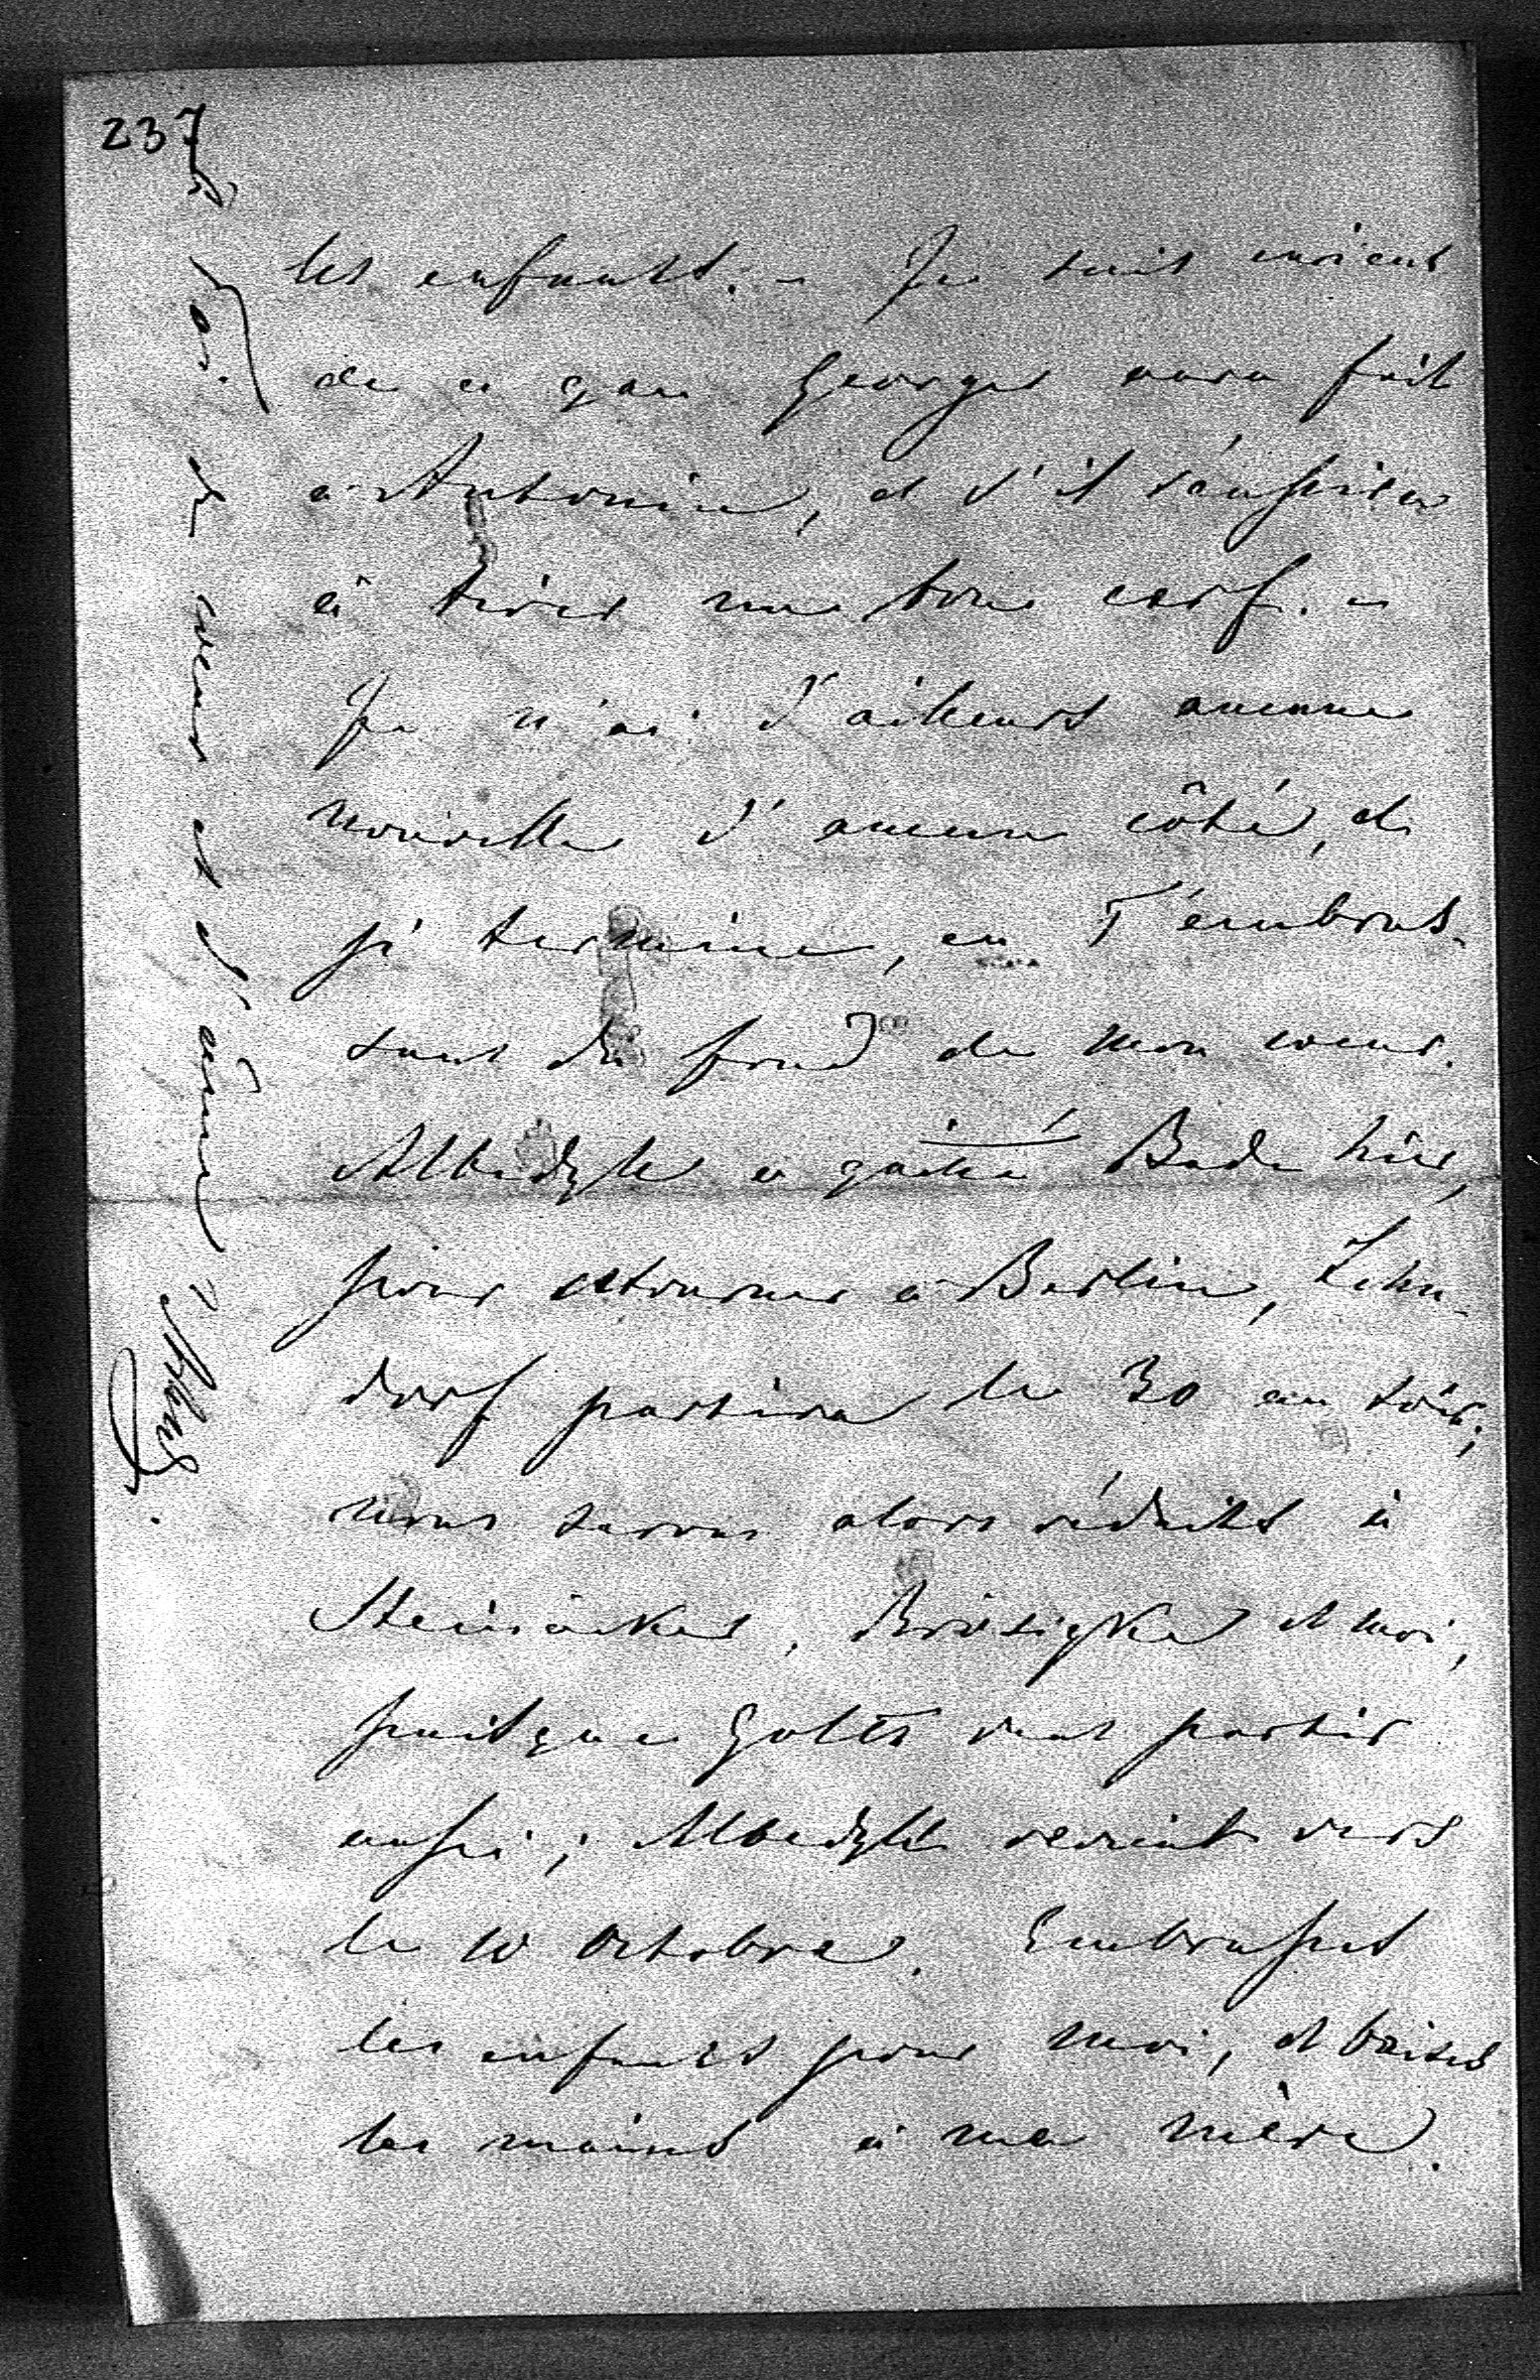 237
les enfants. - Je suis curieux
de ce que Georges aura fait
à Antonin, et s'il réussira
à tirer un bon cerf. -
Je n'ai d'ailleurs aucune
nouvelle d'aucun côté, et
je termine, en T'embras-
sant du fond de mon coeur.
Albedyll a quitté Bade hier,
pour retourner à Berlin, Lehn-
dorf partira le 30 au soir;
nous serons alors réduits à
Steinäcker, Brösigke et moi,
puisque Goltz veut partir
aussi; Albedyll revient vers
le 10 Octobre. Embrasses
les enfants pour moi, et baises
les mains à ma mère.
à Toi de coeur et d'âme